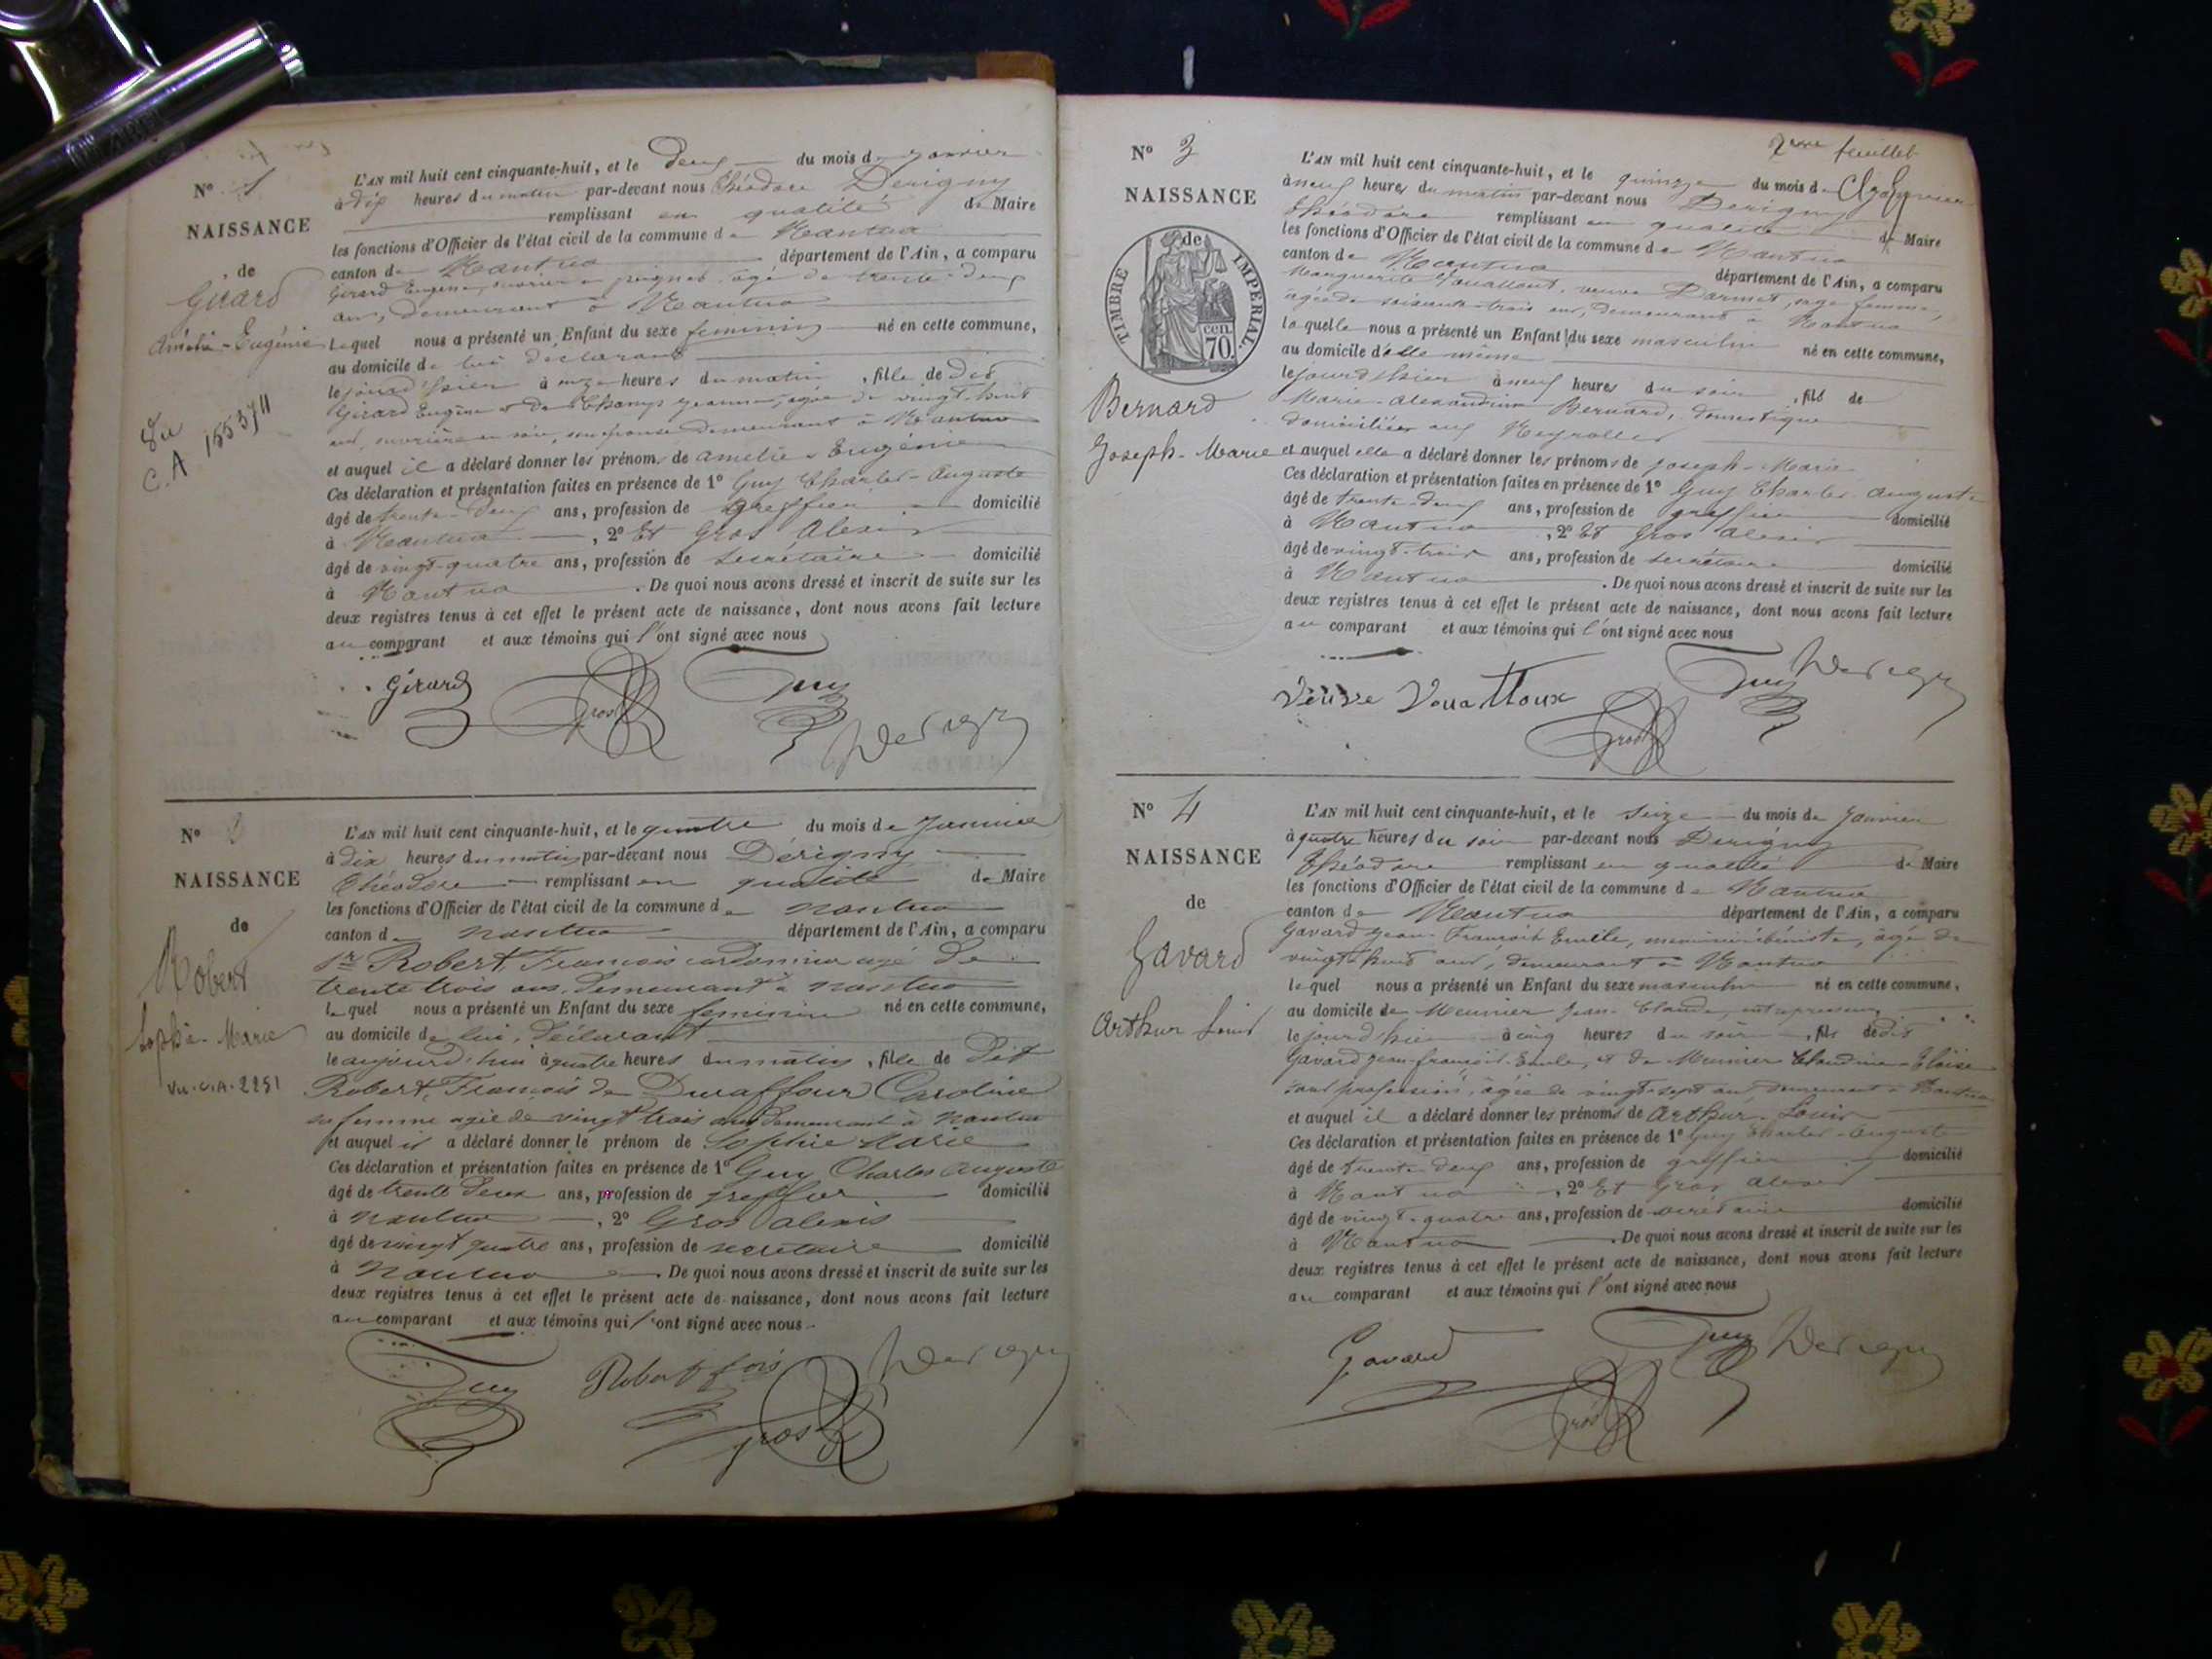 N° 1
NAISSANCE
de
Girard
Amélie-Eugénie
Vu
C.A 15537"
L'AN mil huit cent cinquante-huit, et le Deux du mois de janvier
à dix heures du matin par-devant nous Théodore Derigny
remplissant en qualité de Maire
les fonctions d'Officier de l'état civil de la commune de Nantua
canton de Nantua département de l'Ain, a comparu
Girard Eugène, ouvrier en peignes, âgé de trente-deux
ans, demeurant à Nantua
Lequel nous a présenté un Enfant du sexe féminin né en cette commune,
au domicile de lui déclarant
le jour d'hier à onze heures du matin, fille de dit
Girard Eugène et de Jeanne, âgée de vingt-huit
ans, ouvrière en soie, son épouse demeurant à Nantua
et auquel il a déclaré donner les prénoms de Amélie-Eugénie
Ces déclaration et présentation faites en présence de 1° Guy Charles-Auguste
âgé de trente-deux ans, profession de greffier domicilié
à Nantua, 2° Et Gros Alexis
âgé de vingt-quatre ans, profession de secrétaire domicilié
à Nantua. De quoi nous avons dressé et inscrit de suite sur les
deux registres tenus à cet effet le présent acte de naissance, dont nous avons fait lecture
au comparant et aux témoins qui l'ont signé avec nous
Girard Gros Guy
Derigny
N° 2
NAISSANCE
de
Robert
Sophie-Marie
Vu-C.A-2251
L'AN mil huit cent cinquante-huit, et le quatre du mois de Janvier
à dix heures du matin par-devant nous Dérigny
Théodore remplissant en qualité de Maire
les fonctions d'Officier de l'état civil de la commune de Nantua
canton de Nantua département de l'Ain, a comparu
Sr Robert, François cordonnier agé de
trente trois ans, demeurant à Nantua
Lequel nous a présenté un Enfant du sexe féminin né en cette commune,
au domicile de lui, déclarant
le aujourd'hui à quatre heures du matin, fille de Dit
Robert, François de Duraffour Caroline
sa femme agée de vingt trois ans demeurant à Nantua
et auquel il a déclaré donner le prénom de Sophie Marie
Ces déclaration et présentation faites en présence de 1° Guy Charles Auguste
âgé de trente deux ans, profession de greffier domicilié
à Nantua, 2° Gros Alexis
âgé de vingt quatre ans, profession de secrétaire domicilié
à Nantua. De quoi nous avons dressé et inscrit de suite sur les
deux registres tenus à cet effet le présent acte de naissance, dont nous avons fait lecture
au comparant et aux témoins qui l'ont signé avec nous
Guy Robert fois Gros Derigny
2eme feuillet
N° 3
NAISSANCE
de
TIMBRE IMPERIAL.
70 cen
Bernard
Joseph-Marie
L'AN mil huit cent cinquante-huit, et le quinze du mois de janvier
à neuf heures du matin par-devant nous Derigny
Théodore remplissant en qualité de Maire
les fonctions d'Officier de l'état civil de la commune de Nantua
canton de Nantua département de l'Ain, a comparu
Marguerite veuve sage femme,
âgée de soixante-trois ans, demeurant à Nantua
laquelle nous a présenté un Enfant du sexe masculin né en cette commune,
au domicile d'elle même
le jour d'hier à neuf heures du soir, fils de
Marie-Alexandrine Bernard, domestique
domiciliée aux Neyrolles
et auquel elle a déclaré donner les prénoms de Joseph-Marie
Ces déclaration et présentation faites en présence de 1° Guy Charles-Auguste
âgé de trente-deux ans, profession de greffier domicilié
à Nantua, 2° Et Gros Alexis
âgé de vingt-trois ans, profession de secrétaire domicilié
à Nantua. De quoi nous avons dressé et inscrit de suite sur les
deux registres tenus à cet effet le présent acte de naissance, dont nous avons fait lecture
au comparant et aux témoins qui l'ont signé avec nous
Guy Derigny
Gros
N° 4
NAISSANCE
de
Gavard
Arthur Louis
L'AN mil huit cent cinquante-huit, et le seize du mois de janvier
à quatre heures du soir par-devant nous Derigny
Théodore remplissant en qualité de Maire
les fonctions d'Officier de l'état civil de la commune de Nantua
canton de Nantua département de l'Ain, a comparu
Gavard Jean-François Emile, âgé de
vingt-huit ans, demeurant à Nantua
lequel nous a présenté un Enfant du sexe masculin né en cette commune,
au domicile de Meunier Jean-Claude, entrepreneur,
le jour d'hier à cinq heures du soir, fils de dit
Gavard Jean-François-Emile, et de Meunier Claudine-Eloïse
sans profession, âgée de vingt-sept ans, demeurant à Nantua
et auquel il a déclaré donner les prénoms de Arthur-Louis
Ces déclaration et présentation faites en présence de 1° Guy Charles-Auguste
âgé de trente-deux ans, profession de greffier domicilié
à Nantua, 2° Et Gros Alexis
âgé de vingt-quatre ans, profession de secrétaire domicilié
à Nantua. De quoi nous avons dressé et inscrit de suite sur les
deux registres tenus à cet effet le présent acte de naissance, dont nous avons fait lecture
au comparant et aux témoins qui l'ont signé avec nous
Gavard Guy Derigny
Gros